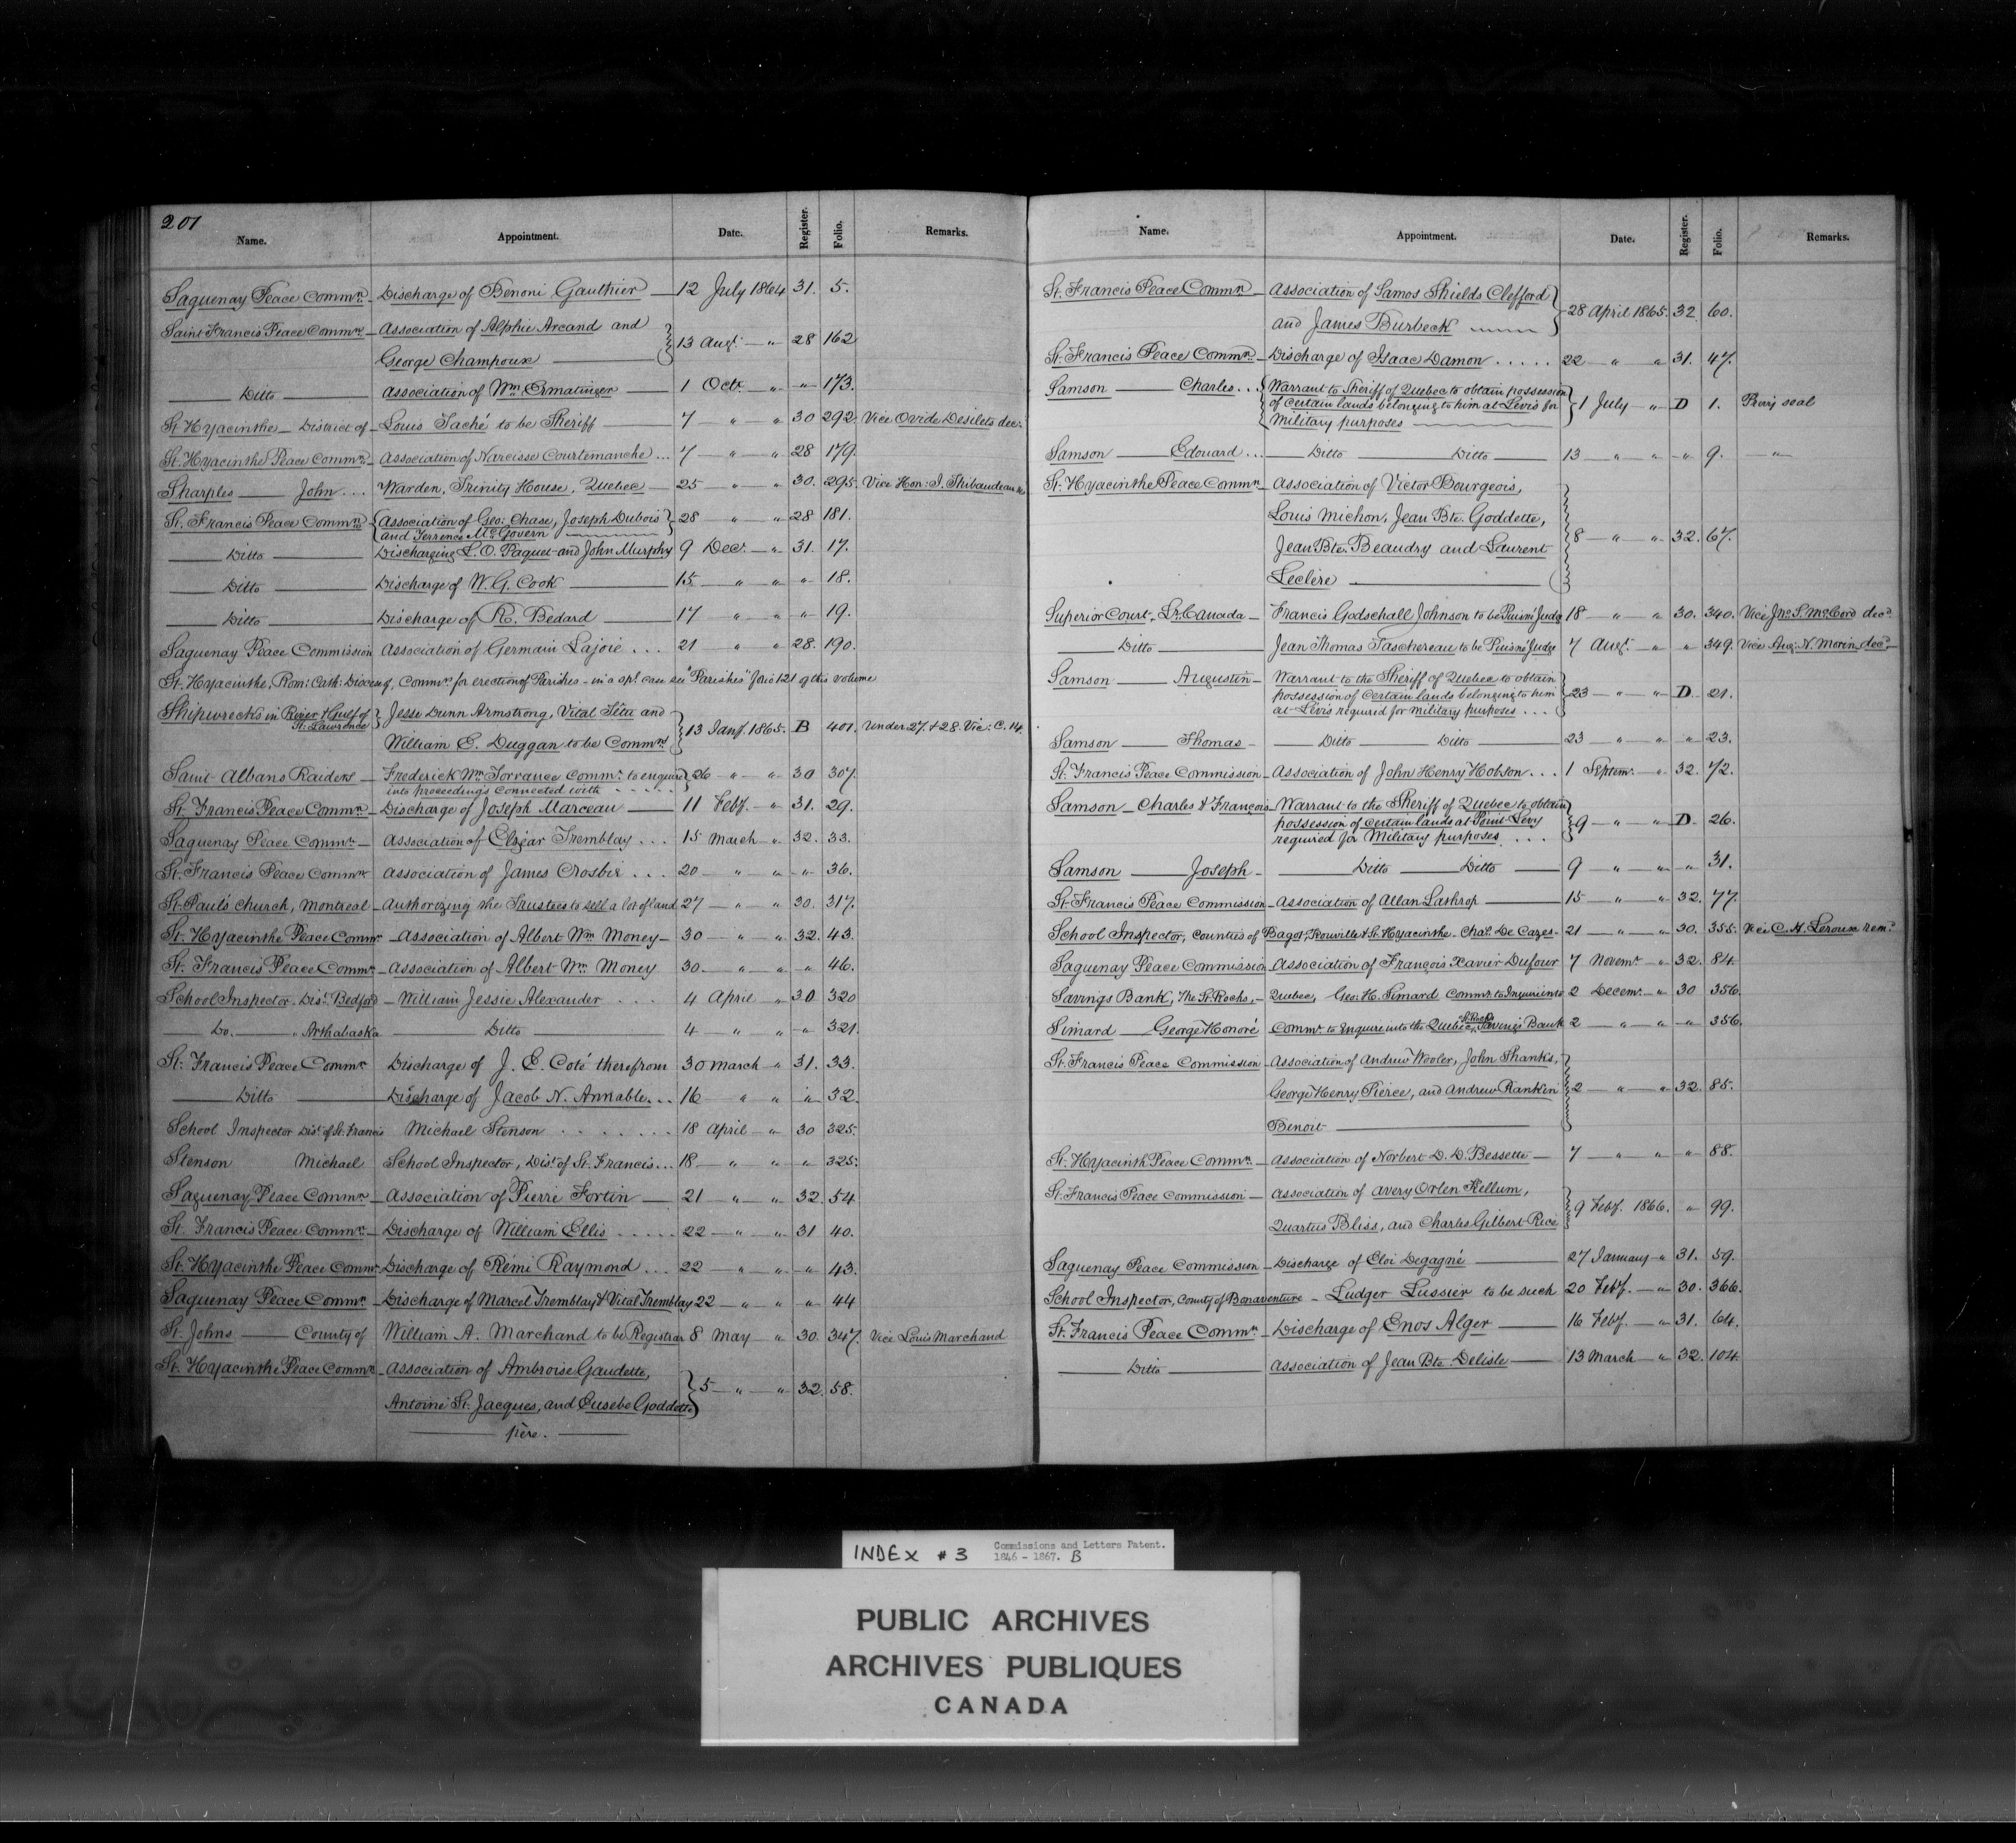 201
Name. Appointment. Date. Register. Folio. Remarks.
Saguenay Peace Commn. Discharge of Benoni Gauthier 12 July 1864 31. 5.
Saint Francis Peace Commn. Association of Alphie Arcand and
George Champoux 13 Augt. " 28 162
Ditto Association of Wm. Ermatinger 1 Octr. " " 173.
St. Hyacinthe District of Louis Taché to be Sheriff 7 " " 30 292. Vice Ovide Desilets dec.
St. Hyacinthe Peace Commn. Association of Narcisse Courtemanche ... 7 " " 28 179.
Sharples John ... Warden, Trinity House, Quebec 25 " " 30. 295. Vice Hon: I. Thibaudeau
St. Francis Peace Commn. Association of Geo: Chase, Joseph Dubois
and Terrence McGovern 28 " " 28 181.
Ditto Discharging L. O. Paquet and John Murphy 9 Decr. " 31. 17.
Ditto Discharge of W. G. Cook 15 " " " 18.
Ditto Discharge of R. Bedard 17 " " " 19.
Saguenay Peace Commission Association of Germain Lajoie ... 21 " " 28. 190.
St. Hyacinthe, Rom: Cath: Diocese of, Commn. for erection of Parishes - in a spl. case see "Parishes" folio 121 of this volume
Shipwrecks in River & Gulf of
St. Lawrence Jesse Dunn Armstrong, Vital Têtu and
William E. Duggan to be Commrs. 13 Jany. 1865. B 401. Under 27. & 28. Vic: C. 14.
Saint Albans Raiders Frederick Wm. Torrance Commr. to enquire
into proceedings connected with 26 " " 30 307.
St. Francis Peace Commn. Discharge of Joseph Marceau 11 Feby. " 31. 29.
Saguenay Peace Commn. Association of Elzéar Tremblay ... 15 March " 32. 33.
St. Francis Peace Commn. Association of James Crosbie ... 20 " " " 36.
St. Paul's Church, Montreal Authorizing the Trustees to sell a lot of land 27 " " 30. 317.
St. Hyacinthe Peace Commn. Association of Albert Wm. Money 30 " " 32. 43.
St. Francis Peace Commn. Association of Albert Wm. Money 30. " " " 46.
School Inspector. Dist. Bedford William Jessie Alexander ... 4 April " 30 320
Do. " Arthabaska Ditto 4 " " " 321.
St. Francis Peace Commn. Discharge of J. E. Coté therefrom 30 March " 31. 33.
Ditto Discharge of Jacob N. Annable ... 16 " " " 32.
School Inspector Dist. of St. Francis Michael Stenson ....... 18 April " 30 325.
Stenson Michael School Inspector, Dist. of St. Francis ... 18 " " " 325.
Saguenay Peace Commn. Association of Pierre Fortin 21 " " 32. 54
St. Francis Peace Commn. Discharge of William Ellis ..... 22 " " 31 40.
St. Hyacinthe Peace Commn. Discharge of Rémi Raymond ... 22 " " " 43.
Saguenay Peace Commn. Discharge of Marcel Tremblay & Vital Tremblay 22 " " " 44
St. Johns County of William A. Marchand to be Registrar 8 May " 30. 347. Vice Louis Marchand
St. Hyacinthe Peace Commn. Association of Ambroise Gaudette,
Antoine St. Jacques, and Eusebe Goddette 5 " " 32. 58.
père.
Name. Appointment. Date. Register. Folio. Remarks.
St. Francis Peace Commn. Association of Samos Shields Clefford
and James Burbeck 28 April 1865. 32. 60.
St. Francis Peace Commn. Discharge of Isaac Damon ..... 22 " " 31. 47.
Samson Charles ... Warrant to Sheriff of Quebec to obtain possession
of certain lands belonging to him at Levis for
Military purposes 1 July " D 1. Privy seal
Samson Edouard ... Ditto Ditto 13 " " " 9. "
St. Hyacinthe Peace Commn. Association of Victor Bourgeois,
Louis Michon, Jean Bte. Goddette,
Jean Bte. Beaudry and Laurent
Leclère 8 " " 32. 67.
Superior Court, Lr. Canada Francis Godschall Johnson to be Puisné Judge 18 " " 30. 340. Vice Jno. S. McCord decd.
Ditto Jean Thomas Taschereau to be Puisné Judge 7 Augt. " " 349. Vice Aug: N. Morin decd.
Samson Augustin Warrant to the Sheriff of Quebec to obtain
possession of certain lands belonging to him
at Levis required for Military purposes ... 23 " " D. 21.
Samson Thomas Ditto Ditto 23 " " " 23.
St. Francis Peace Commission Association of John Henry Hobson ... 1 Septemr. " 32. 72.
Samson Charles & François Warrant to the Sheriff of Quebec to obtain
possession of certain lands at Point Levy
required for Military purposes .... 9 " " D. 26.
Samson Joseph Ditto Ditto 9 " " " 31.
St. Francis Peace Commission Association of Allan Lathrop 15 " " 32. 77.
School Inspector, Counties of Bagot, Rouville & St. Hyacinthe - Chas. De Cazes 21 " " 30. 355. Vice C. H. Leroux remd.
Saguenay Peace Commission Association of François Xavier Dufour 7 Novemr. " 32. 84.
Savings Bank, The St. Rochs, Quebec, Geo: H. Simard Commr. to Inquire into 2 Decemr. " 30 356.
Simard George Honoré Commr. to Enquire into the Quebec, St. Rochs Savings Bank 2 " " " 356.
St. Francis Peace Commission Association of Andrew Wooler, John Shanks,
George Henry Pierce, and Andrew Rankin
Benoit 2 " " 32. 85.
St. Hyacinth Peace Commn. Association of Norbert D. D. Bessette 7 " " " 88.
St. Francis Peace Commission Association of Avery Orlen Kellum,
Quartus Bliss, and Charles Gilbert Rice 9 Feby. 1866. " 99.
Saguenay Peace Commission Discharge of Eloi Degagné 27 January " 31. 59.
School Inspector, County of Bonaventure Ludger Lussier to be such 20 Feby. " 30. 366.
St. Francis Peace Commn. Discharge of Enos Alger 16 Feby. " 31. 64.
Ditto Association of Jean Bte. Delisle 13 March " 32. 104.
INDEX # 3 Commissions and Letters Patent.
1846 - 1867. B
PUBLIC ARCHIVES
ARCHIVES PUBLIQUES
CANADA